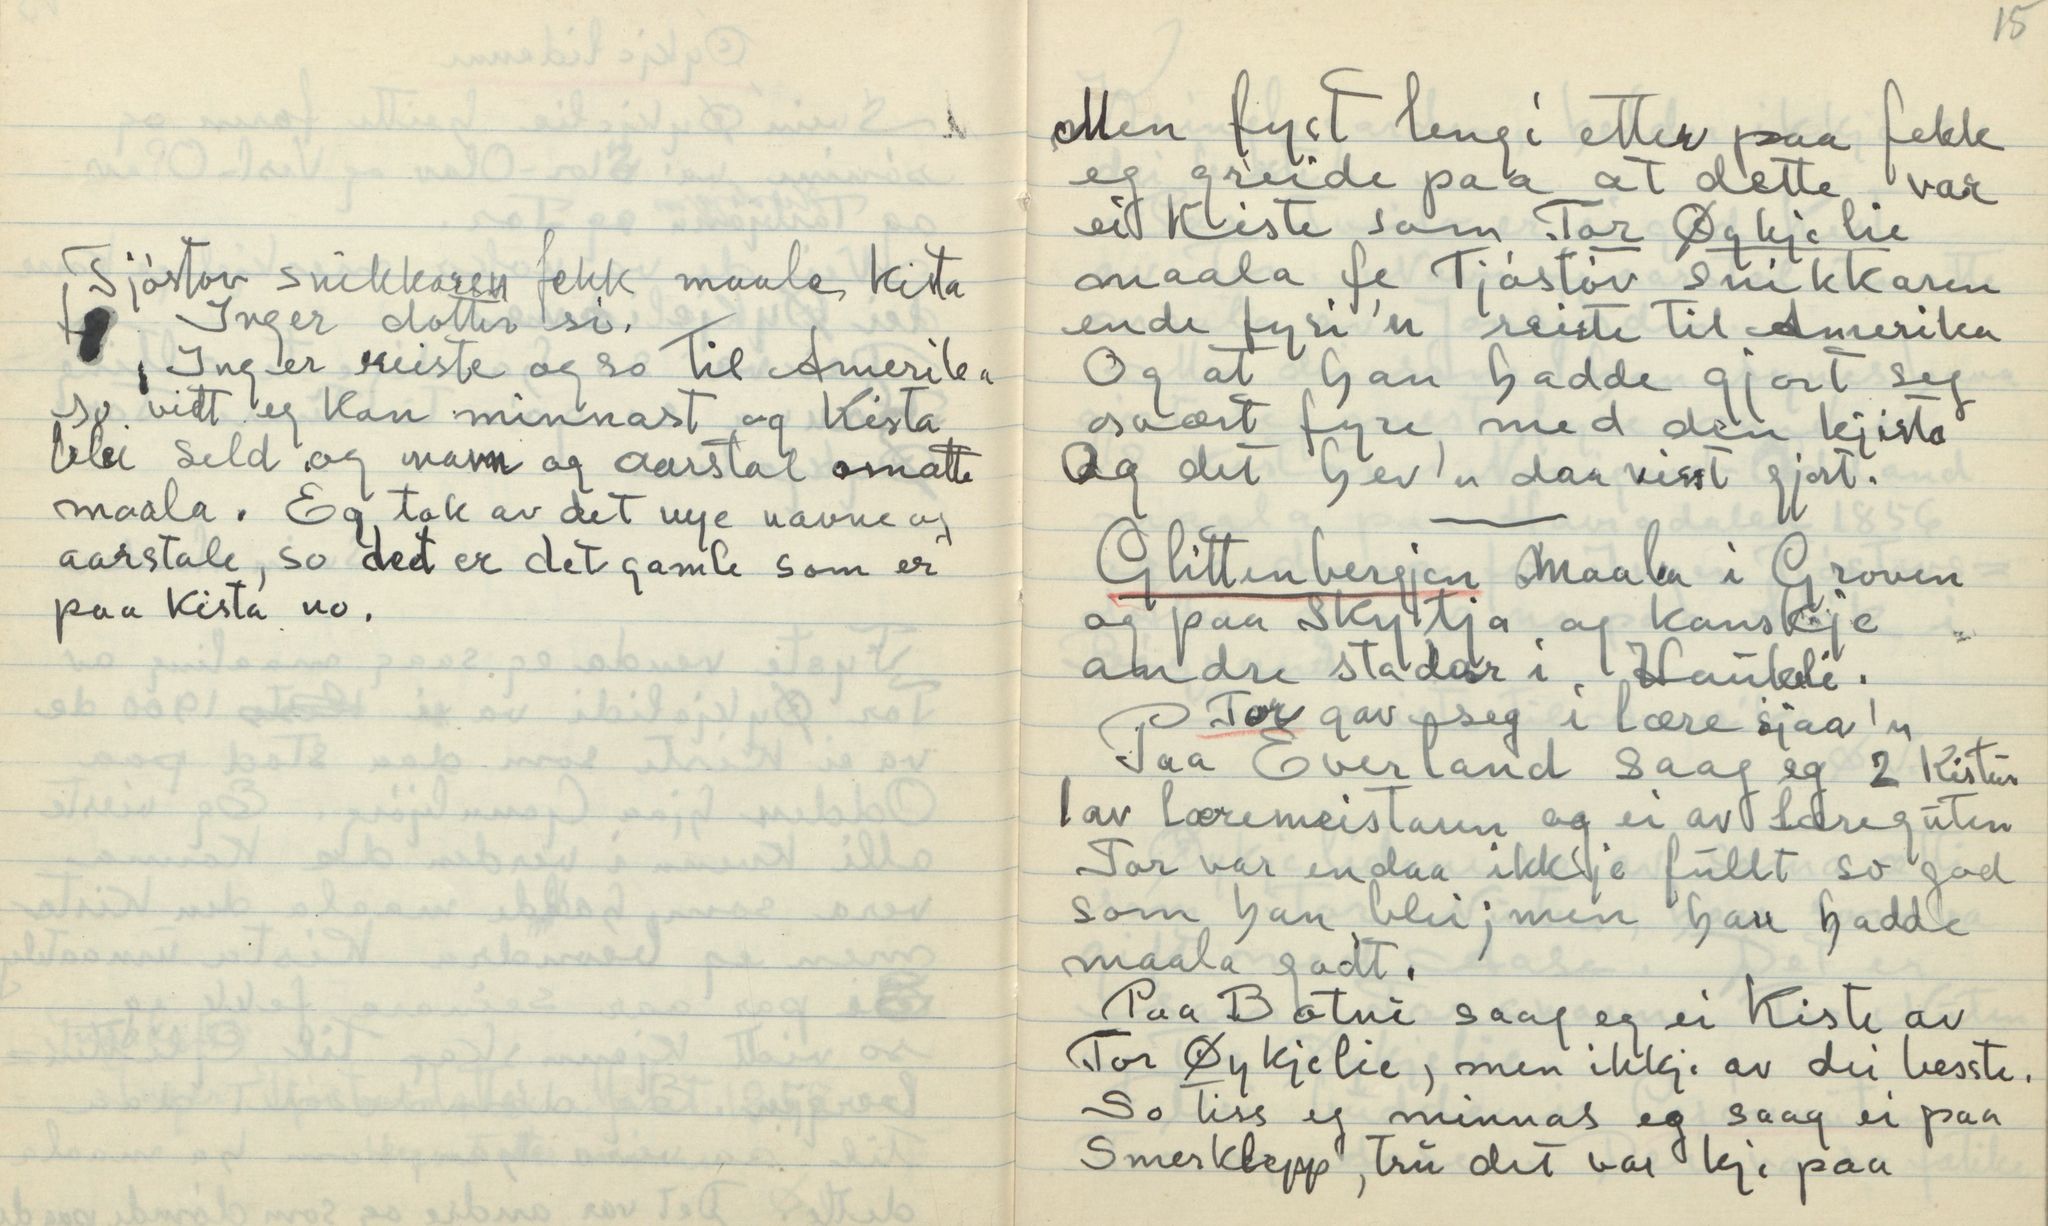 Tjóstov snikkaren fekk maale Kista
Inger dotter si.
Inger reiste ogso til Amerika
so vidt eg Kan minnast og Kista
blei seld og navn og aarstal omatte
maala. Eg tok av det nye navne og
aarstale, so det er det gamle som er
paa Kista no.
15
Men fyst lengi etter paa fekk
eg greide paa at dette var
ei Kiste som Tor Øykjelie
maala fe Tjóstóv Snikkaren
ende fyri'n reiste til Amerika
Og at han hadde gjort seg
osvært fyre med den kjista
Og det hev'n daa visst gjort.
Glittenbergjen maala i Groven
og paa Skyttja og kanskje
andre stadar i Haukeli.
Tor gav seg i lære sjaa'n
Paa Everland saag eg 2 Kistur
1 av læremeistaren og ei av Læreguten
Tor var endaa ikkje fullt so god
som han blei; men han hadde
maala godt.
Paa Botni saag eg ei Kiste av
Tor Øykjelie, men ikkje av dei besste.
So tiss eg minnas eg saag ei paa
Smerklepp, tru det var kje paa